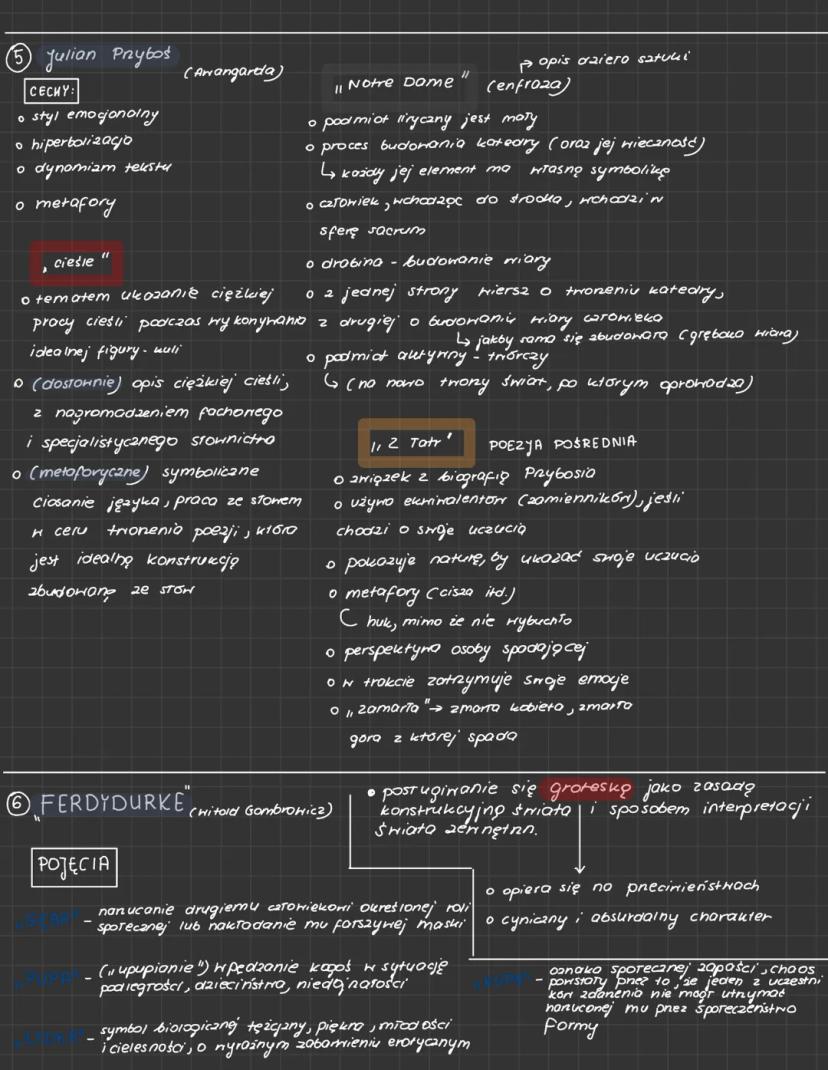 5 Julian Przyboś
(Awangarda)
CECHY:
o styl emocjonalny
o hiperbolizacja
o dynamizm tekstu
o metafory
„cieśle"
o tematem ukazanie ciężkiej
pracy cieśli podczas wykonywania
idealnej figury - kuli
o (dosłownie) opis ciężkiej cieśli,
z nagromadzeniem fachowego
i specjalistycznego słownictwa
o (metaforyczne) symboliczne
ciosanie języka, praca ze słowem
w celu tworzenia poezji, która
jest idealną konstrukcją
zbudowaną ze słów
„Notre Dame" (enfraza)
↳ opis dzieła sztuki
o podmiot liryczny jest mały
o proces budowania katedry (oraz jej wieczność)
↳ każdy jej element ma własną symbolikę
o człowiek, wchodząc do środka, wchodzi w
sferę sacrum
o drabina - budowanie wiary
o z jednej strony wiersz o tworzeniu katedry,
z drugiej o budowaniu wiary człowieka
↳ jakby sama się zbudowała (głęboka wiara)
o podmiot aktywny - twórczy
↳ (na nowo tworzy świat, po którym oprowadza)
„Z Tatr" POEZJA POŚREDNIA
o związek z biografią Przybosia
o używa ekwiwalentów (zamienników), jeśli
chodzi o swoje uczucia
o pokazuje naturę, by ukazać swoje uczucia
o metafory (cisza itd.)
huk, mimo że nie wybuchło
o perspektywa osoby spadającej
o w trakcie zatrzymuje swoje emocje
o „zamarła" → zmarła kobieta, zmarła
góra z której spada
6 „FERDYDURKE" (Witold Gombrowicz)
• posługiwanie się groteską jako zasadą
konstrukcyjną świata i sposobem interpretacji
świata zewnętrzn.
o opiera się na przeciwieństwach
o cyniczny i absurdalny charakter
POJĘCIA
„GĘBA" - narzucanie drugiemu człowiekowi określonej roli
społecznej lub nakładanie mu fałszywej maski
„PUPA" - („upupianie") wpędzanie kogoś w sytuację
podległości, dzieciństwa, niedojrzałości
„ŁYDKA" - symbol biologicznej tężyzny, piękna, młodości
i cielesności, o wyraźnym zabarwieniu erotycznym
„KUPA" - oznaka społecznej zapaści, chaos
powstały przez to, że jeden z uczestni
ków zdarzenia nie mógł utrzymać
narzuconej mu przez społeczeństwo
formy